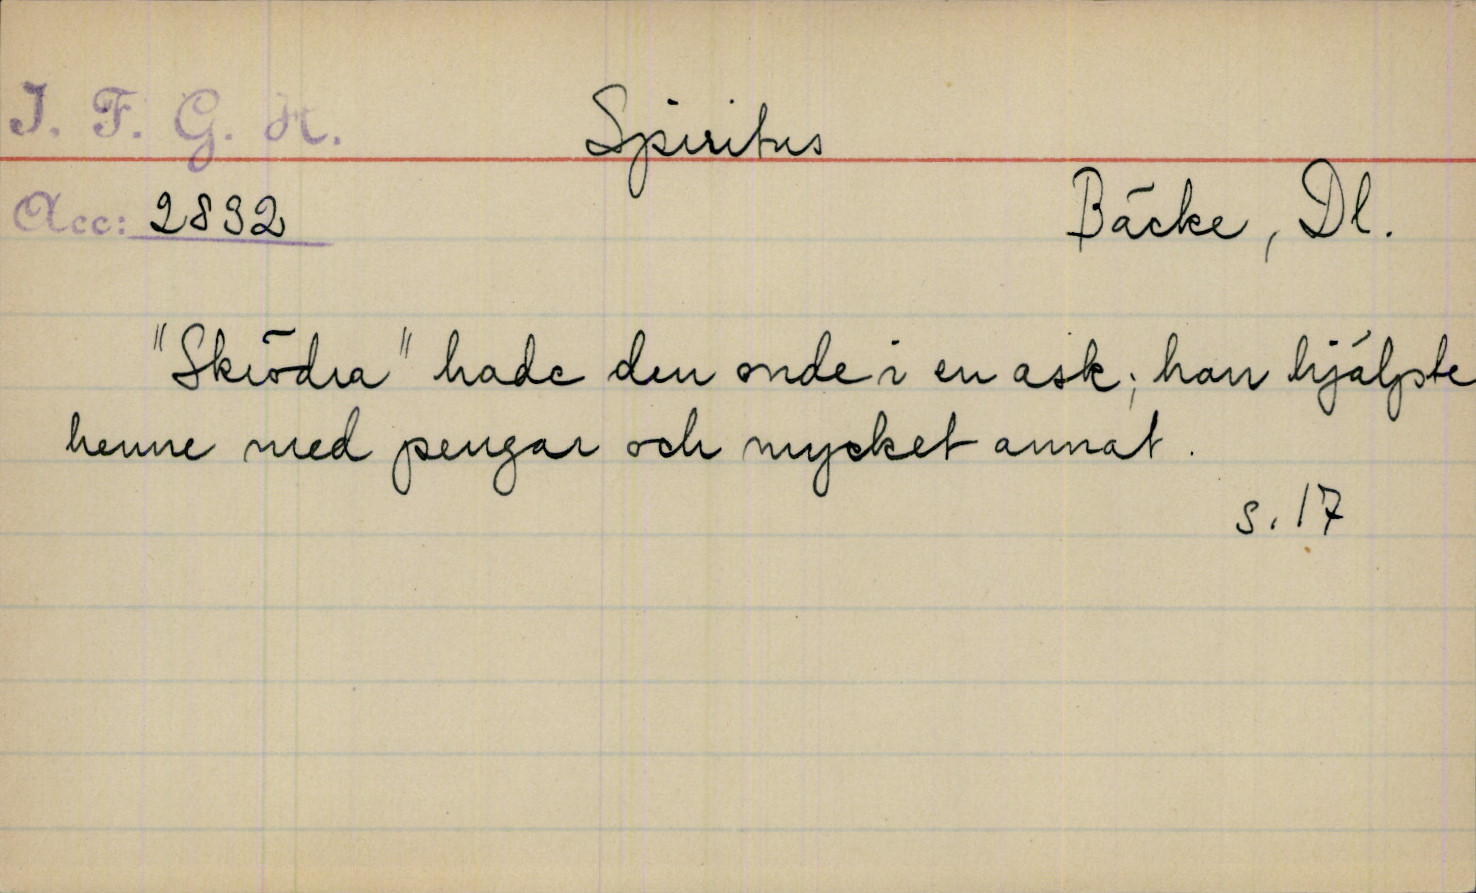 I. F. G. H.
Spiritus
Acc: 2832
Bäcke, Dl.
"Skrödra" hade den onde i en ask; han hjälpte
henne med pengar och mycket annat.
s. 17